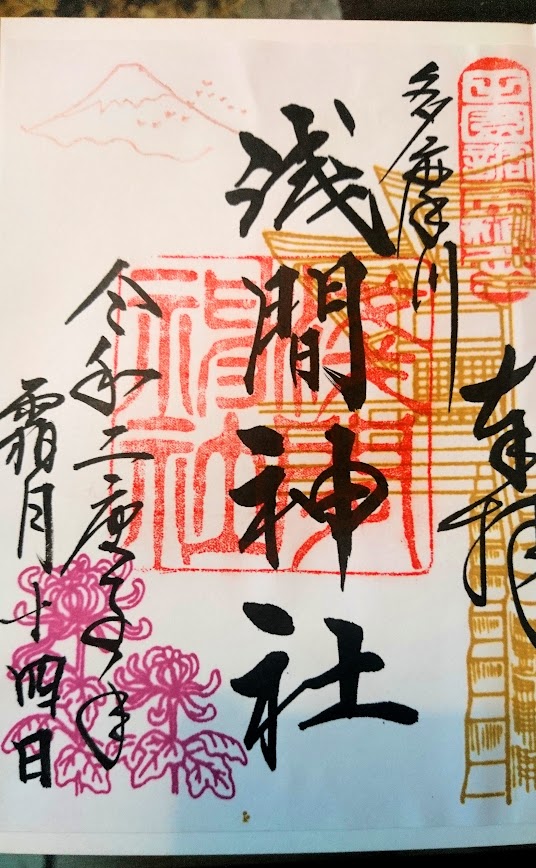 奉拝
多摩川
浅間神社
令和二庚子年
霜月十四日
浅間神社